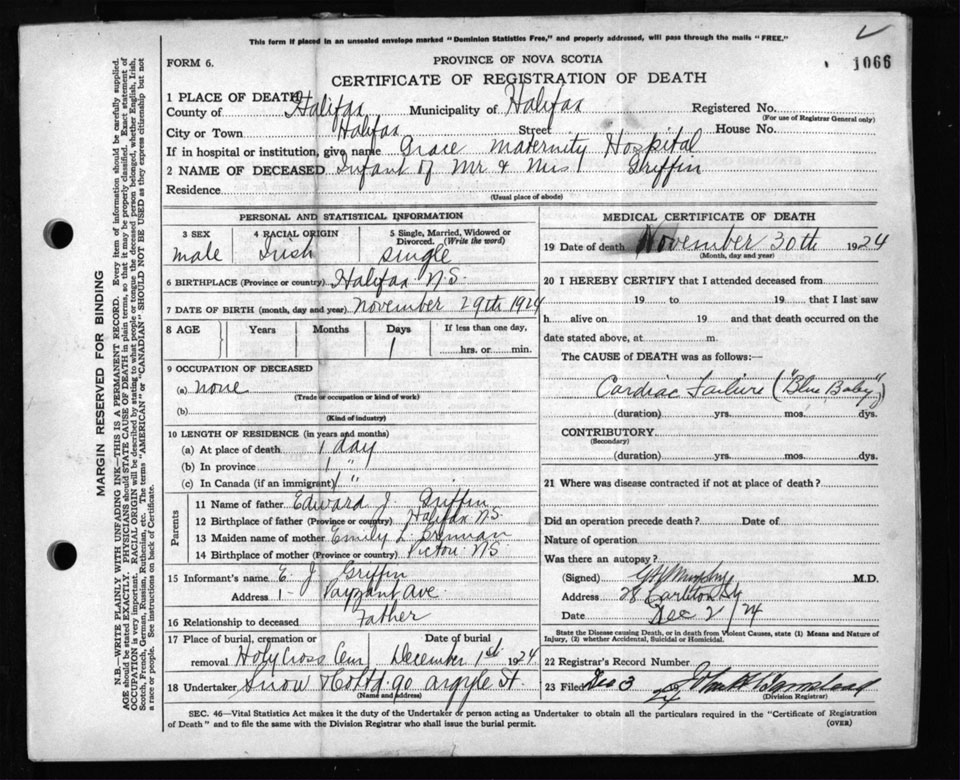 This form if placed in an unsealed envelope marked "Dominion Statistics Free," and properly addressed, will pass through the mails "FREE."
FORM 6.
PROVINCE OF NOVA SCOTIA
1066
CERTIFICATE OF REGISTRATION OF DEATH
1 PLACE OF DEATH
County of Halifax Municipality of Halifax Registered No.
(For use of Registrar General only)
City or Town Halifax Street House No.
If in hospital or institution, give name Grace Maternity Hospital
2 NAME OF DECEASED Infant of Mr & Mrs Griffin
Residence
(Usual place of abode)
PERSONAL AND STATISTICAL INFORMATION
3 SEX 4 RACIAL ORIGIN 5 Single, Married, Widowed or Divorced. (Write the word)
male Irish single
6 BIRTHPLACE (Province or country) Halifax N.S.
7 DATE OF BIRTH (month, day and year) November 29th 1924
8 AGE Years Months Days If less than one day,
1 hrs. or min.
9 OCCUPATION OF DECEASED
(a) none
(Trade or occupation or kind of work)
(b)
(Kind of industry)
10 LENGTH OF RESIDENCE (in years and months)
(a) At place of death 1 day
(b) In province 1 "
(c) In Canada (if an immigrant) 1 "
Parents
11 Name of father Edward J. Griffin
12 Birthplace of father (Province or country) Halifax N.S.
13 Maiden name of mother Emily L. Brennan
14 Birthplace of mother (Province or country) Pictou N.S.
15 Informant's name E. J. Griffin
Address 1- Payzant Ave
16 Relationship to deceased Father
17 Place of burial, cremation or removal Date of burial
Holy Cross Cem. December 1st 1924
18 Undertaker Snow & Co Ltd 90 Argyle St.
(Name and address)
MEDICAL CERTIFICATE OF DEATH
19 Date of death November 30th 1924
(Month, day and year)
20 I HEREBY CERTIFY that I attended deceased from
19 to 19 that I last saw
h alive on 19 and that death occurred on the
date stated above, at m.
The CAUSE of DEATH was as follows:—
Cardiac Failure ("Blue Baby")
(duration) yrs. mos. dys.
CONTRIBUTORY
(Secondary)
(duration) yrs. mos. dys.
21 Where was disease contracted if not at place of death?
Did an operation precede death? Date of
Nature of operation
Was there an autopsy?
(Signed) Murphy M.D.
Address 28 Carlton St
Date Dec 2/24
State the Disease causing Death, or in death from Violent Causes, state (1) Means and Nature of
Injury, (2) whether Accidental, Suicidal or Homicidal.
22 Registrar's Record Number
23 Filed Dec 3 24
(Division Registrar)
SEC. 46—Vital Statistics Act makes it the duty of the Undertaker or person acting as Undertaker to obtain all the particulars required in the "Certificate of Registration
of Death" and to file the same with the Division Registrar who shall issue the burial permit.
(OVER)
MARGIN RESERVED FOR BINDING
N.B.—WRITE PLAINLY WITH UNFADING INK—THIS IS A PERMANENT RECORD. Every item of information should be carefully supplied.
AGE should be stated EXACTLY. PHYSICIANS should STATE CAUSE OF DEATH in plain terms, so that it may be properly classified. Exact statement of
OCCUPATION is very important. RACIAL ORIGIN will be described by stating to what people or tongue the deceased person belonged, whether English, Irish,
Scotch, French, German, Russian, Ruthenian, etc. The terms "AMERICAN" or "CANADIAN" SHOULD NOT BE USED as they express citizenship but not
a race or people. See instructions on back of Certificate.